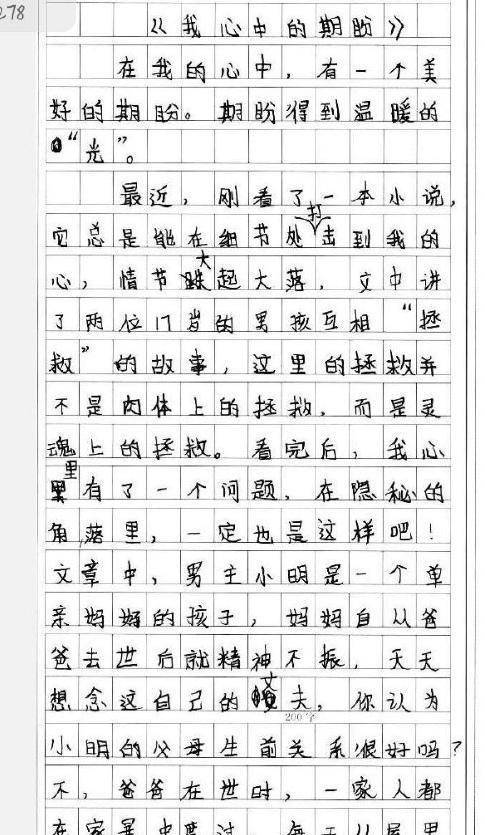 278
《我心中的期盼》
在我的心中，有一个美
好的期盼。期盼得到温暖的
“光”。
最近，刚看了一本小说，
它总是能在细节处打击到我的
心，情节大起大落，文中讲
了两位17岁的男孩互相“拯
救”的故事，这里的拯救并
不是肉体上的拯救，而是灵
魂上的拯救。看完后，我心
里有了一个问题，在隐秘的
角落里，一定也是这样吧！
文章中，男主小明是一个单
亲妈妈的孩子，妈妈自从爸
爸去世后就精神不振，天天
想念这自己的丈夫，你认为
200字
小明的父母生前关系很好吗？
不，爸爸在世时，一家人都
在家暴中度过，每天